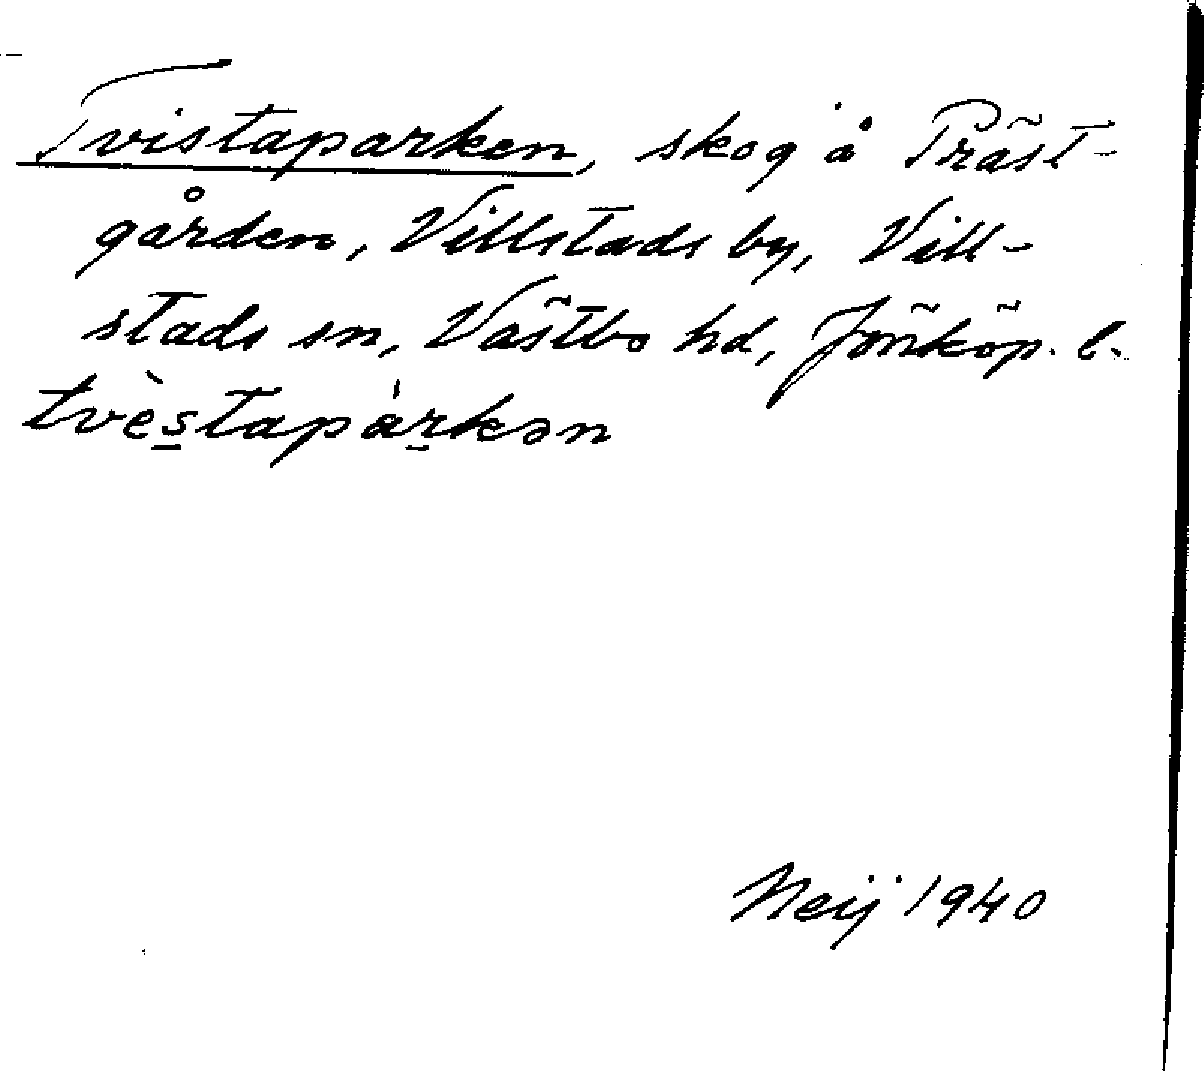 Tvistaparken, skog å Präst-
gården, Villstads by, Vill-
stads sn, Västbo hd, Jönköp. l.
tvèstapàrkən
Neij 1940